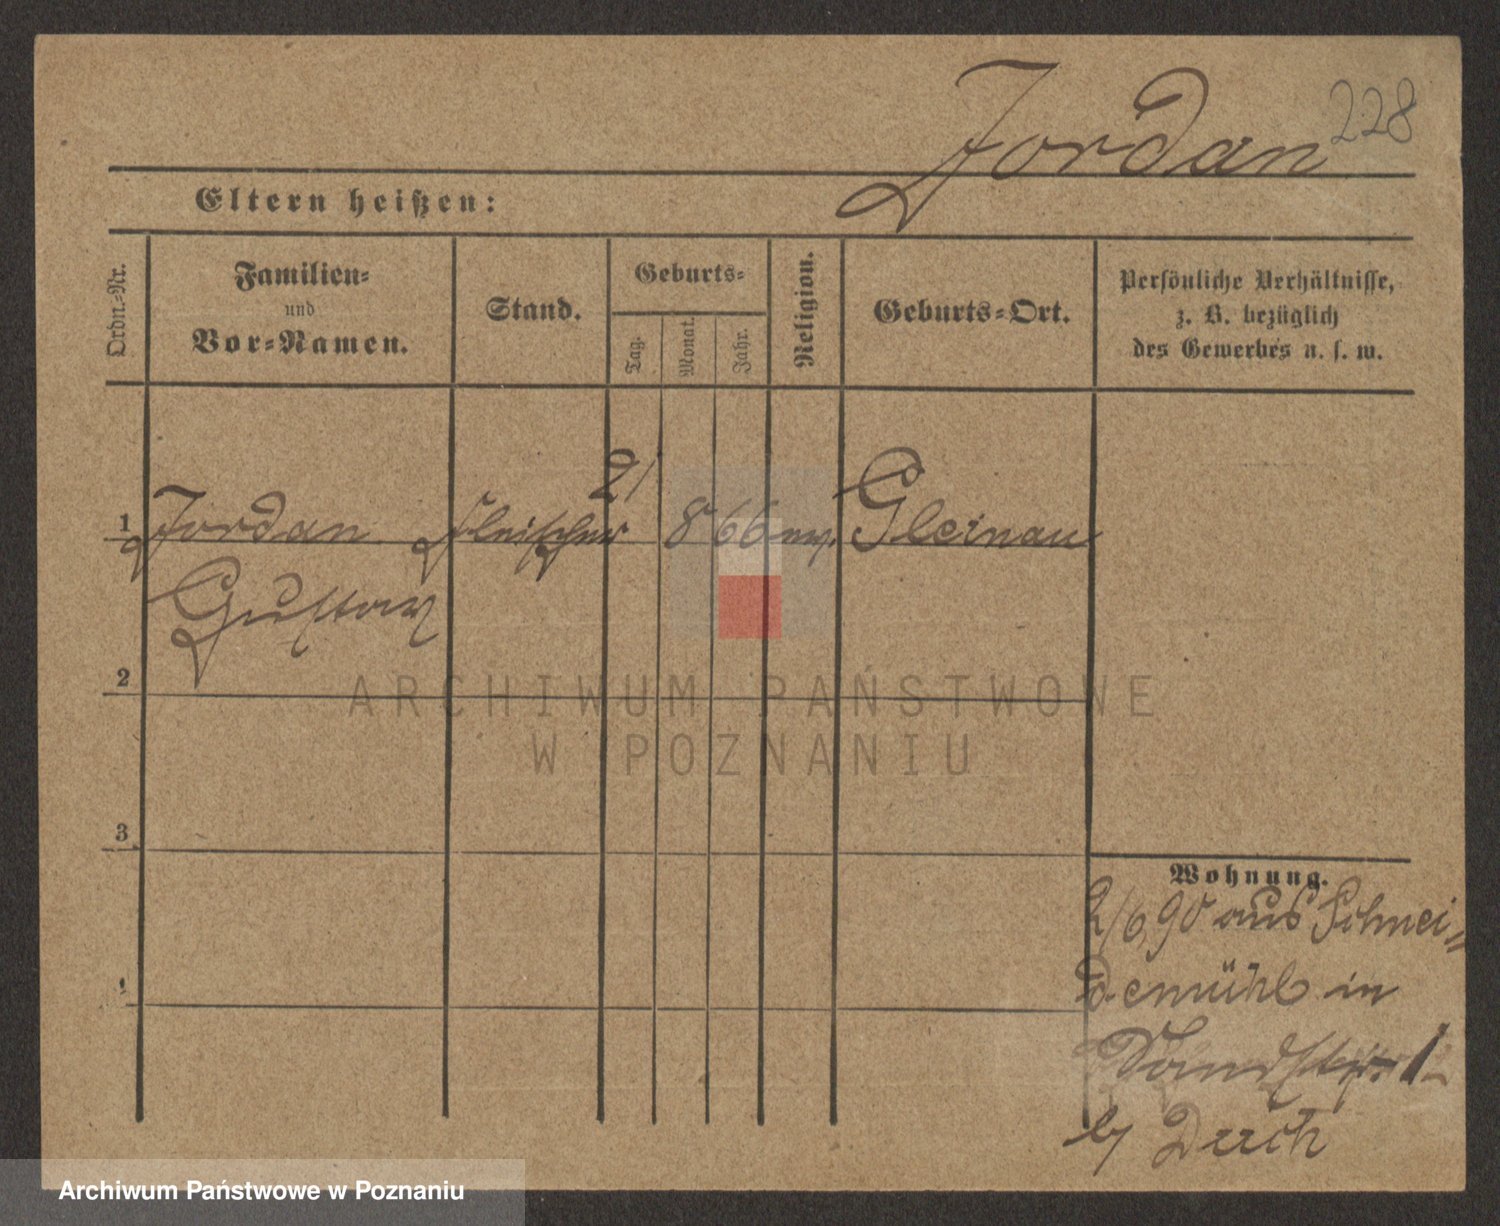 228
Jordan
Eltern heißen:
Ordn.-Nr.
Familien-
und
Vor-Namen.
Stand.
Geburts-
Tag.
Monat.
Jahr.
Religion.
Geburts-Ort.
Persönliche Verhältnisse,
z. B. bezüglich
des Gewerbes u. s. w.
1 Jordan Fleischer 21 8 66 ev. Gleinau
Gustav
2
3
Wohnung.
2/6 90 aus Schnei-
demühl in
1
b/
ARCHIWUM PAŃSTWOWE
W POZNANIU
Archiwum Państwowe w Poznaniu